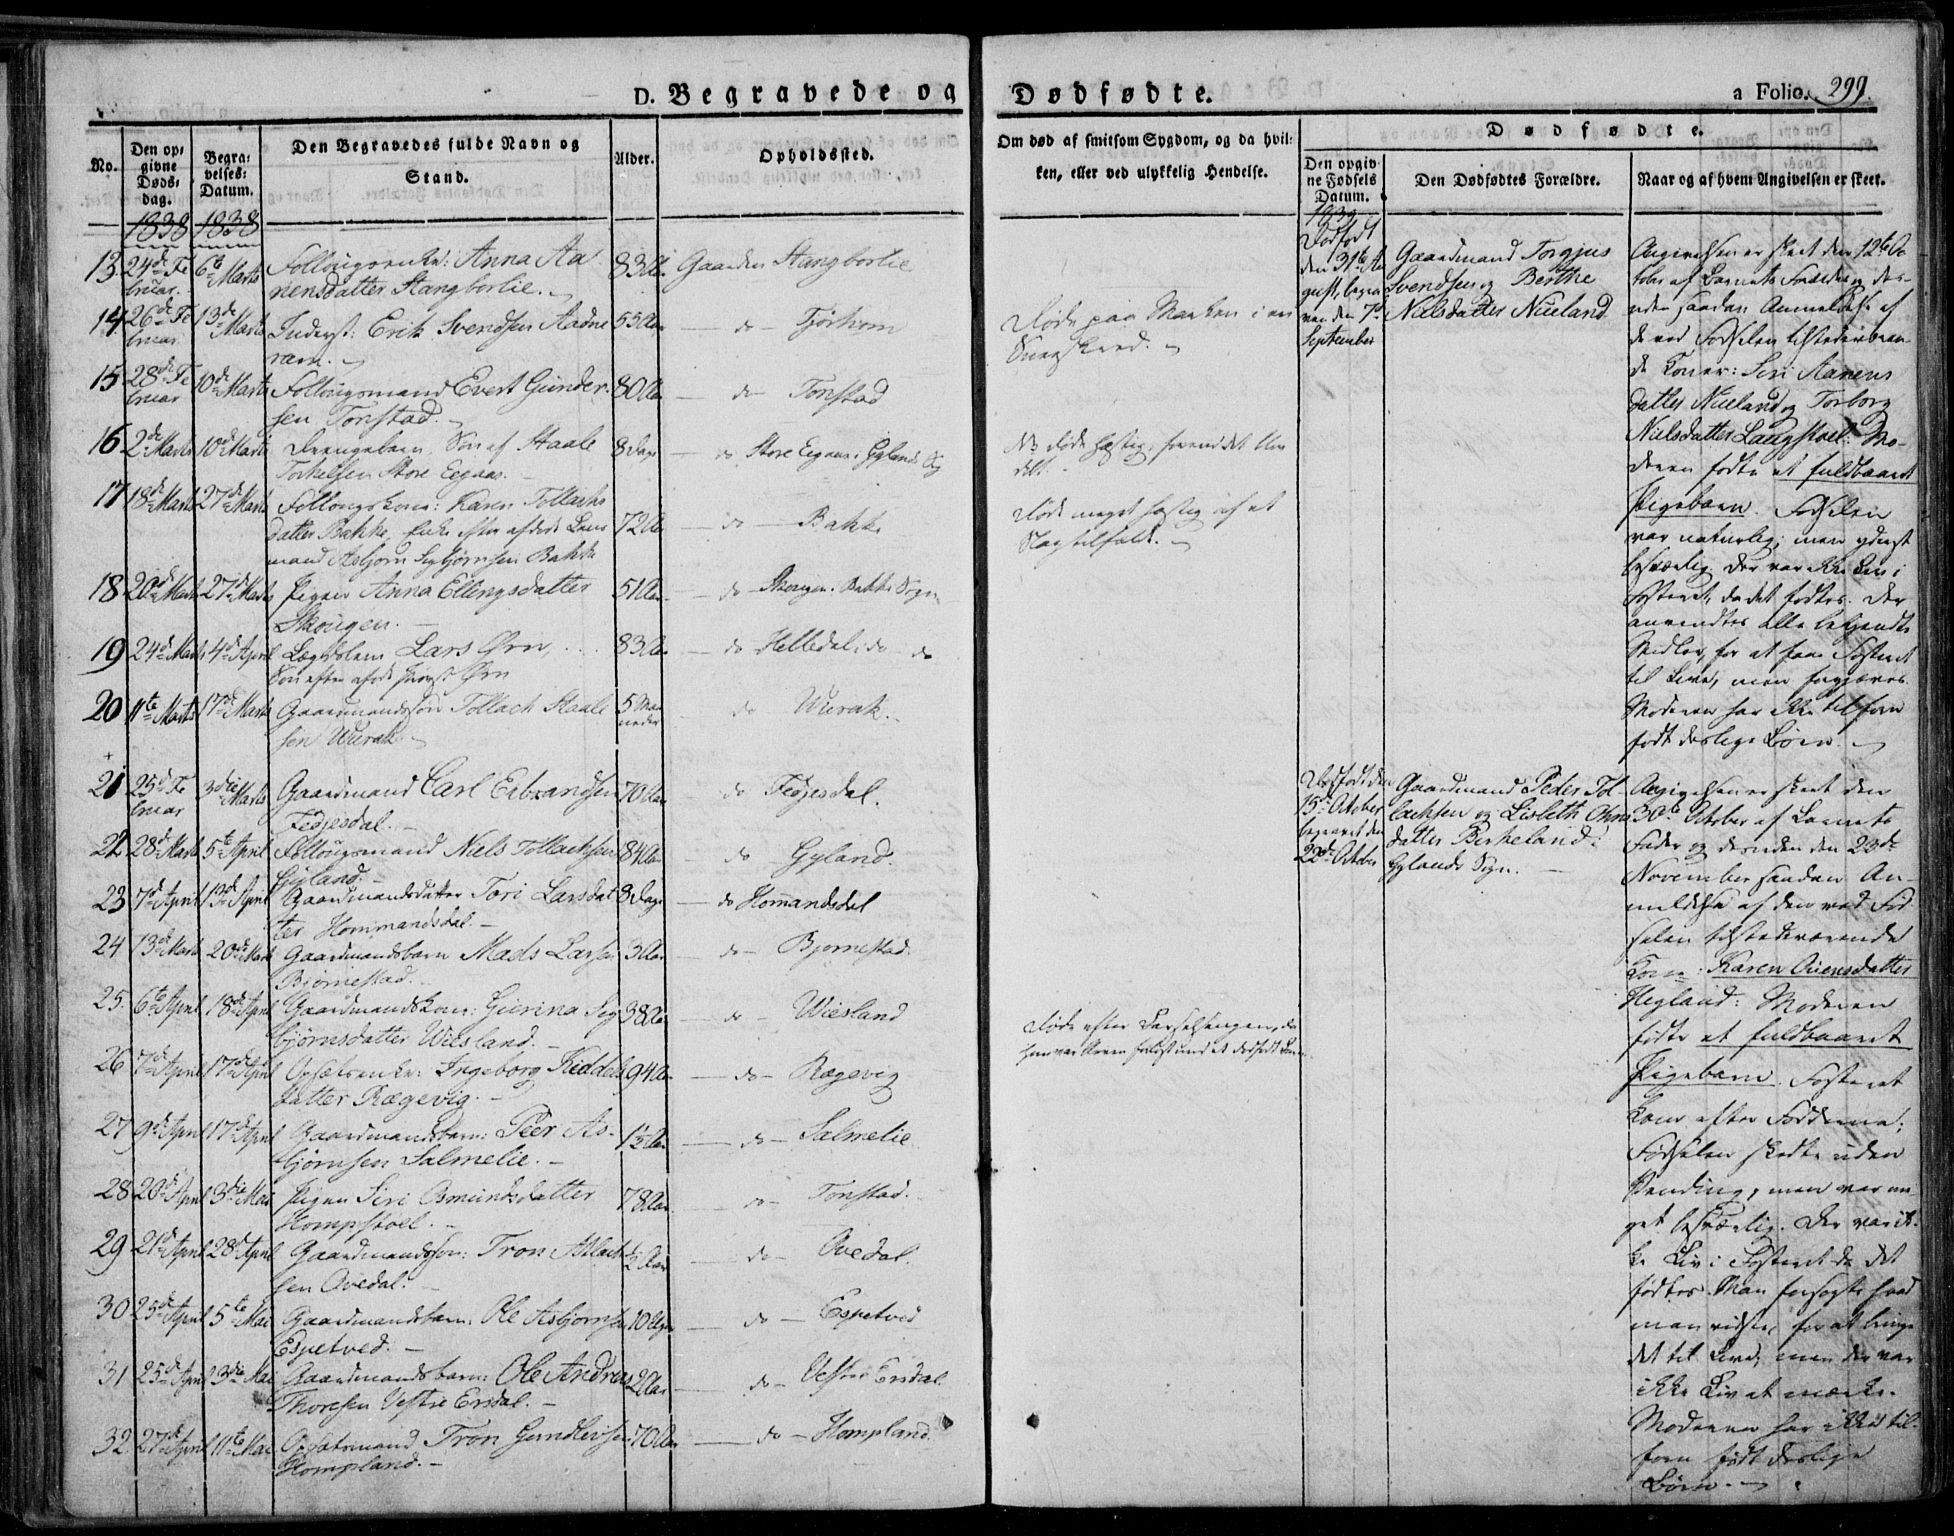 D. Begravede og
Dødfødte.
a Folio. 299
No.
Den opgivne Døds-dag.
Begravelses-Datum.
Den Begravedes fulde Navn og Stand.
Alder.
Opholdssted.
Om død af smitsom Sygdom, og da hvilken, eller ved ulykkelig Hendelse.
Dødfødte.
Den opgivne Fødsels Datum.
Den Dødfødtes Forældre.
Naar og af hvem Angivelsen er skeet.
1838 1838
13 24de Februar 6te Marts Follougsenke: Anna Aanensdatter Stangborlie. 83 Aar Gaarden Stangborlie
14 26de Februar 13de Marts Inderst: Erik Svendsen Aadneram. 55 Aar do Tjørhom
Døde paa Marken i en Sneeskred.
15 28de Februar 10de Marts Follougsmand Evert Gundersen Tonstad. 80 Aar do Tonstad
16 2de Marts 10de Marts Drengebarn Søn af Staale Torkelsen Store Eegaas. 8 Dage do Store Eegaas i Gylands Sogn
17 18de Marts 27de Marts Follougskone: Karen Tollachsdatter Bakke, Enke efter afdøde Asbjørn Sigbjørnsen Bakke 72 Aar do Bakke
Døde meget hastig af et Slagtilfælde.
18 20de Marts 27de Marts Pigen Anna Ellingsdatter Skougen. 51 Aar do Skougen i Bakke Sogn
19 24de Marts 4de April Lars Ørn, Søn efter afdøde Ørn 83 Aar do Helledal i do do
20 11te Marts 17de Marts Gaardmandssøn Tollach Staalesen Wuerak 5 Maaneder do Wuerak.
21 25de Februar 3die Marts Gaardmand Carl Erbrandsen Fedjesdal. 70 Aar do Fedjesdal.
22 28de Marts 5te April Follougsmand Niels Tollachsen Gyland. 84 Aar do Gyland.
23 7de April 13de April Gaardmandsdatter Tori Larsdatter Hommandsdal. 8 Dage do Homandsdal
24 13de Marts 20de Marts Gaardmandsbarn Mads Larsen Bjørnestad. 3 Aar do Bjørnestad.
25. 6te April 18de April Gaardmandskone: Gurina Sigbjørnsdatter Wiesland. 38 Aar do Wiesland
Døde efter Barselsengen, da hun var bleven forløst med et dødfødt
26 7de April 17de April Enke: Ingeborg Keddelsdatter Rægevig. 94 Aar do Rægevig
27 9de April 17de April Gaardmandsbarn: Peer Asbjørnsen Salmelie. 1½ Aar do Salmelie
28 20de April 3die Mai Pigen Siri Osmundsdatter Hompstoel. 78 Aar do Tonstad.
29 21de April 28de April Gaardmandssøn: Tron Aslachsen Ovedal. ½ Aar do Ovedal.
30 25de April 5te Mai Gaardmandsbarn: Ole Asbjørnsen Espetved. 10 do Espetved
31 25de April 3die Mai Gaardmandsbarn: Ole Andreas Thoresen Vestre Ersdal. 2 Aar do Vestre Ersdal.
32 27de April 11te Mai Tron Gundleivsen Hompland. 70 Aar do Hompland.
Dødfødt
den 31te August, begraven
den 7de
September
Gaardmand Torgjus
Svendsen og Berthe
Nielsdatter Nueland
Angivelsen er skeet den 12te October
af Barnets Fader og desuden
saadan Anmeldelse af
de ved Fødselen tilstedeværende
Koner: Siri Aanensdatter
Nueland og Torborg
Nielsdatter Langstoel. Moderen
fødte et fuldbaaret
Pigebarn. Fødselen
var naturlig; men yderst
besværlig. Der var ikke Liv i
Fosteret, da det fødtes. Der
anvendtes alle bekjendte
Midler, for at faae Fosteret
til Live, men forgjæves.
Moderen har ikke tilforn
født deslige Børn.
Dødfødt den
15de October
begravet den
22de October
Gaardmand Peder Tollachsen
og Lisbeth Ohnsdatter
Birkeland i
Gylands Sogn.
Angivelsen er skeet den
30te October af Barnets
Fader og desuden den 23de
November saadan Anmeldelse
af den ved Fødselen
tilstedeværende
Kone: Karen Ovensdatter
Hegland: Moderen
fødte et fuldbaaret
Pigebarn. Fosteret
kom efter Fødderne;
Fødselen skedte uden
Vending, men var meget
besværlig. Der var ikke
Liv i Fosteret da det
fødtes. Man forsøgte hvad
man vidste, for at bringe
det til Live, men der var
ikke Liv at mærke.
Moderen har ikke tilforn
født deslige
Børn.